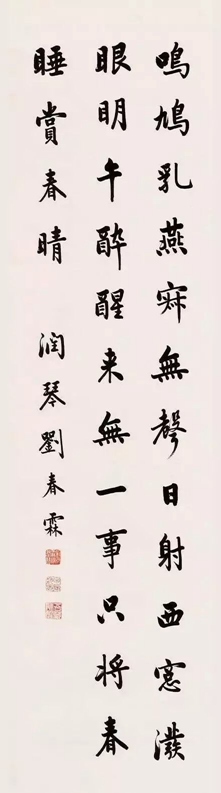 鳴鳩乳燕寂無聲日射西窻潑
眼明午醉醒来無一事只将春
睡賞春晴 润琴劉春霖